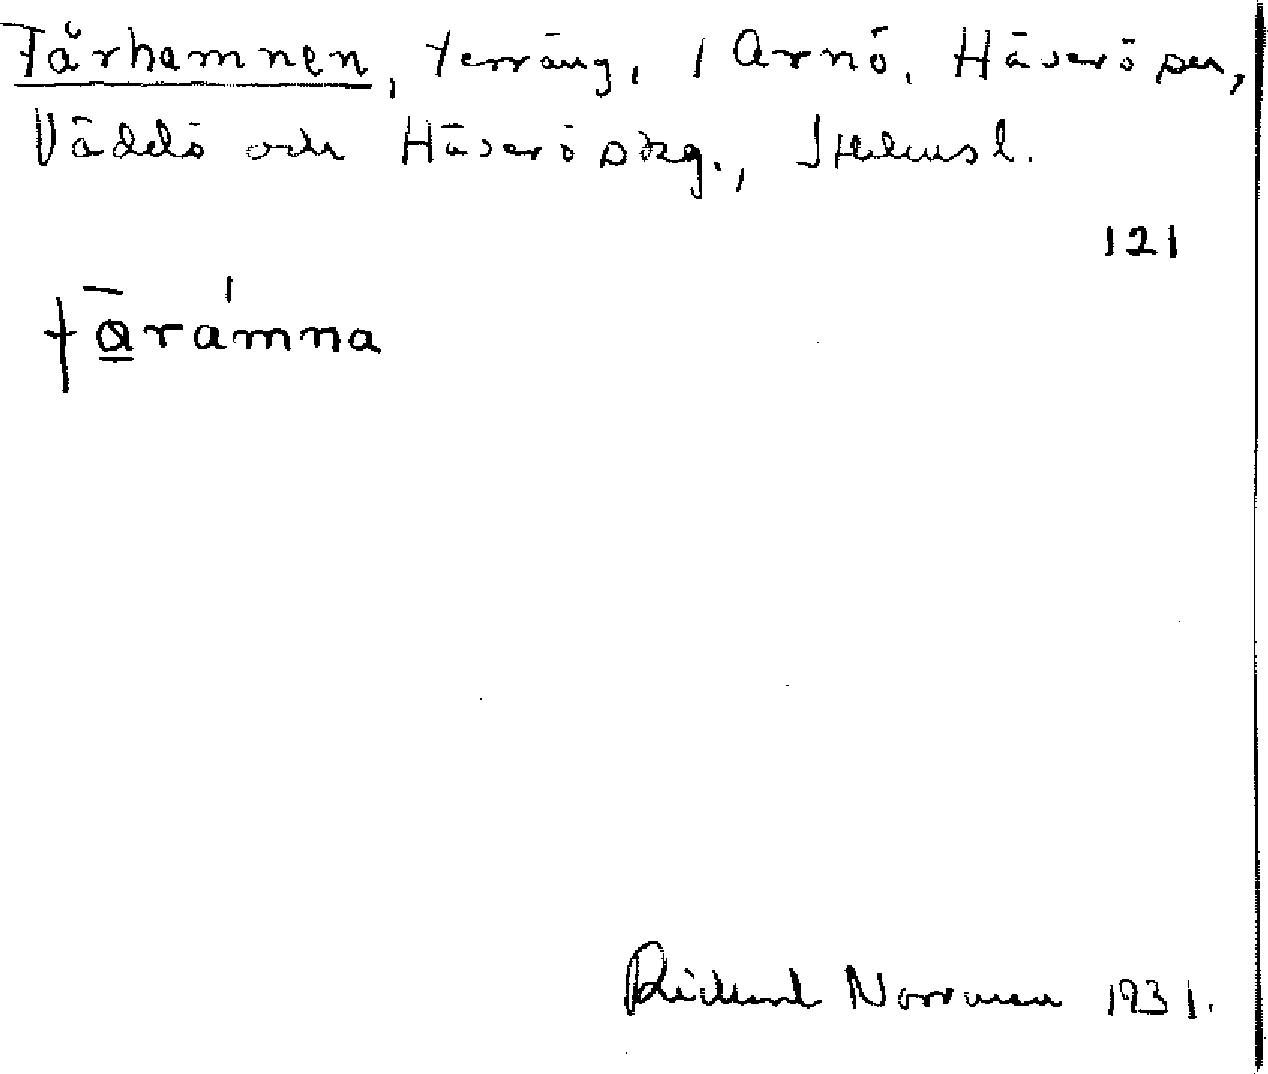 Fårhamnen, terräng, i Arnö, Häverö sn,
Väddö och Häverö skg., Sthlmsl.
121
fārámna
Rickard Norrman 1931.